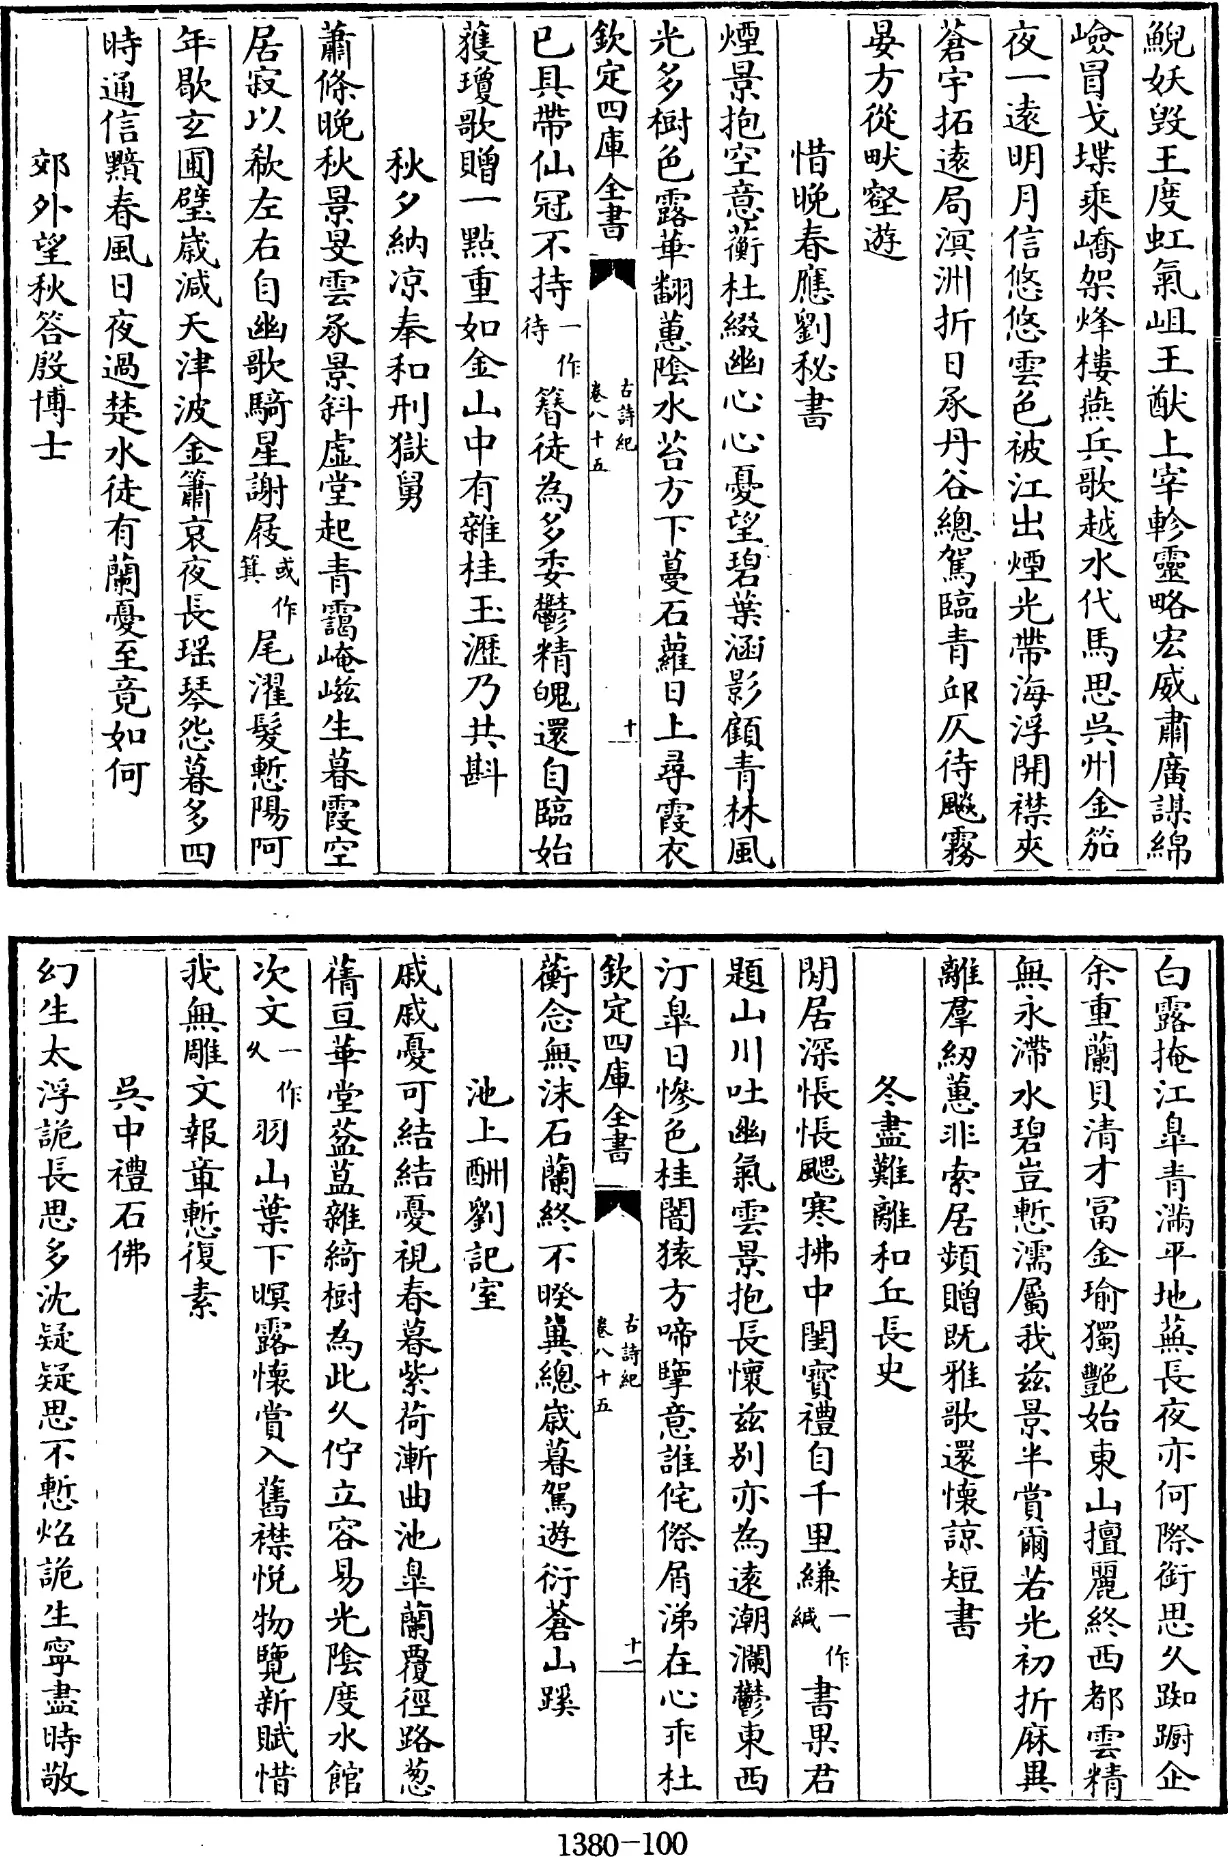 鯢妖毀王度虹氣岨王猷上宰軫靈略宏威肅廣謀綿
嶮冒戈堞乘嶠架烽樓燕兵歌越水代馬思吳州金笳
夜一遠明月信悠悠雲色被江出煙光帶海浮開襟夾
蒼宇拓遠局溟洲折日承丹谷總駕臨青邱仄待飈霧
晏方從畎壑遊
惜晚春應劉秘書
煙景抱空意蘅杜綴幽心心憂望碧葉涵影顧青林風
光多樹色露華翻蕙陰水苔方下蔓石蘿日上尋霞衣
欽定四庫全書 古詩紀 卷八十五 十
已具帶仙冠不持一作待簪徒為多委鬱精魄還自臨始
獲瓊歌贈一點重如金山中有雜桂玉瀝乃共斟
秋夕納凉奉和刑獄舅
蕭條晚秋景旻雲承景斜虛堂起青靄崦嵫生暮霞空
居寂以欷左右自幽歌騎星謝屐或作箕尾濯髮慙陽阿
年歇玄圃璧歲減天津波金簫哀夜長瑶琴怨暮多四
時通信黯春風日夜過楚水徒有蘭憂至竟如何
郊外望秋答殷博士
白露掩江臯青滿平地蕪長夜亦何際銜思久踟蹰企
余重蘭貝清才富金瑜獨艷始東山擅麗終西都雲精
無永滯水碧豈慙濡屬我兹景半賞爾若光初折麻異
離羣紉蕙非索居頻贈既雅歌還懷諒短書
冬盡難離和丘長史
閒居深悵悵颸寒拂中閨寳禮自千里縑一作緘書果君
題山川吐幽氣雲景抱長懷兹別亦為遠潮瀾鬱東西
汀臯日慘色桂闇猿方啼搫意誰侘傺屑涕在心乖杜
欽定四庫全書 古詩紀 卷八十五 十一
蘅念無沫石蘭終不暌冀總歲暮駕遊衍蒼山蹊
池上酬劉記室
戚戚憂可結結憂視春暮紫荷漸曲池臯蘭覆徑路葱
蒨亘華堂葐蒀雜綺樹為此久佇立容易光陰度水館
次文一作久羽山葉下暝露懷賞入舊襟悦物覽新賦惜
我無雕文報章慙復素
吳中禮石佛
幻生太浮詭長思多沈疑疑思不慙炤詭生寧盡時敬
1380-100